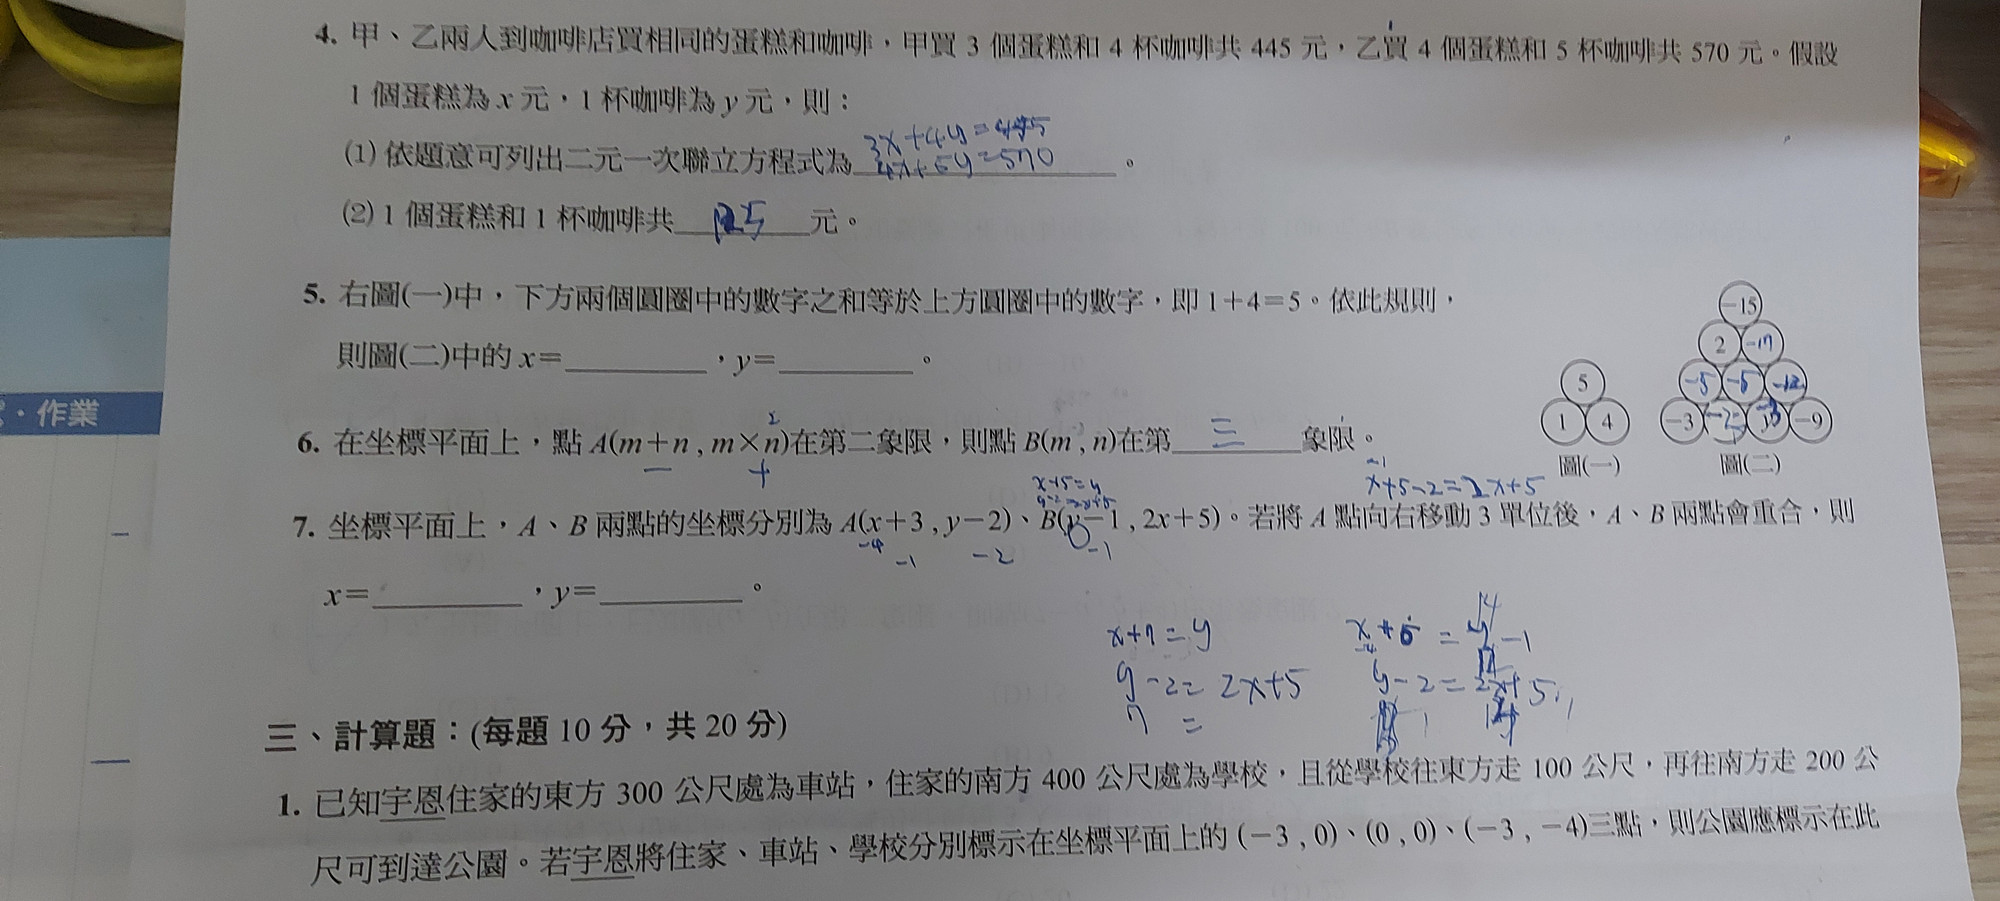 4. 甲、乙兩人到咖啡店買相同的蛋糕和咖啡,甲買 3 個蛋糕和 4 杯咖啡共 445 元,乙買 4 個蛋糕和 5 杯咖啡共 570 元。假設
1 個蛋糕為 x 元,1 杯咖啡為 y 元,則:
3x+4y=445
(1) 依題意可列出二元一次聯立方程式為 4x+5y=570 。
(2) 1 個蛋糕和 1 杯咖啡共 125 元。
5. 右圖(一)中,下方兩個圓圈中的數字之和等於上方圓圈中的數字,即 1+4=5。依此規則,
則圖(二)中的 x=______,y=______。
-15
2 -17
5 -5 -5 -12
1 4 -3 -9
圖(一) 圖(二)
6. 在坐標平面上,點 A(m+n , m×n)在第二象限,則點 B(m , n)在第 三 象限。
- +
-1
x+5=y x+5-2=2x+5
y-2=2x+5
7. 坐標平面上,A、B 兩點的坐標分別為 A(x+3 , y-2)、B(y-1 , 2x+5)。若將 A 點向右移動 3 單位後,A、B 兩點會重合,則
-4 -1 -2 0 -1
x=______,y=______。
x+7=y
y-2=2x+5 y-2=2x+5
7 =
三、計算題:(每題 10 分,共 20 分)
1. 已知宇恩住家的東方 300 公尺處為車站,住家的南方 400 公尺處為學校,且從學校往東方走 100 公尺,再往南方走 200 公
尺可到達公園。若宇恩將住家、車站、學校分別標示在坐標平面上的 (-3 , 0)、(0 , 0)、(-3 , -4)三點,則公園應標示在此
・作業